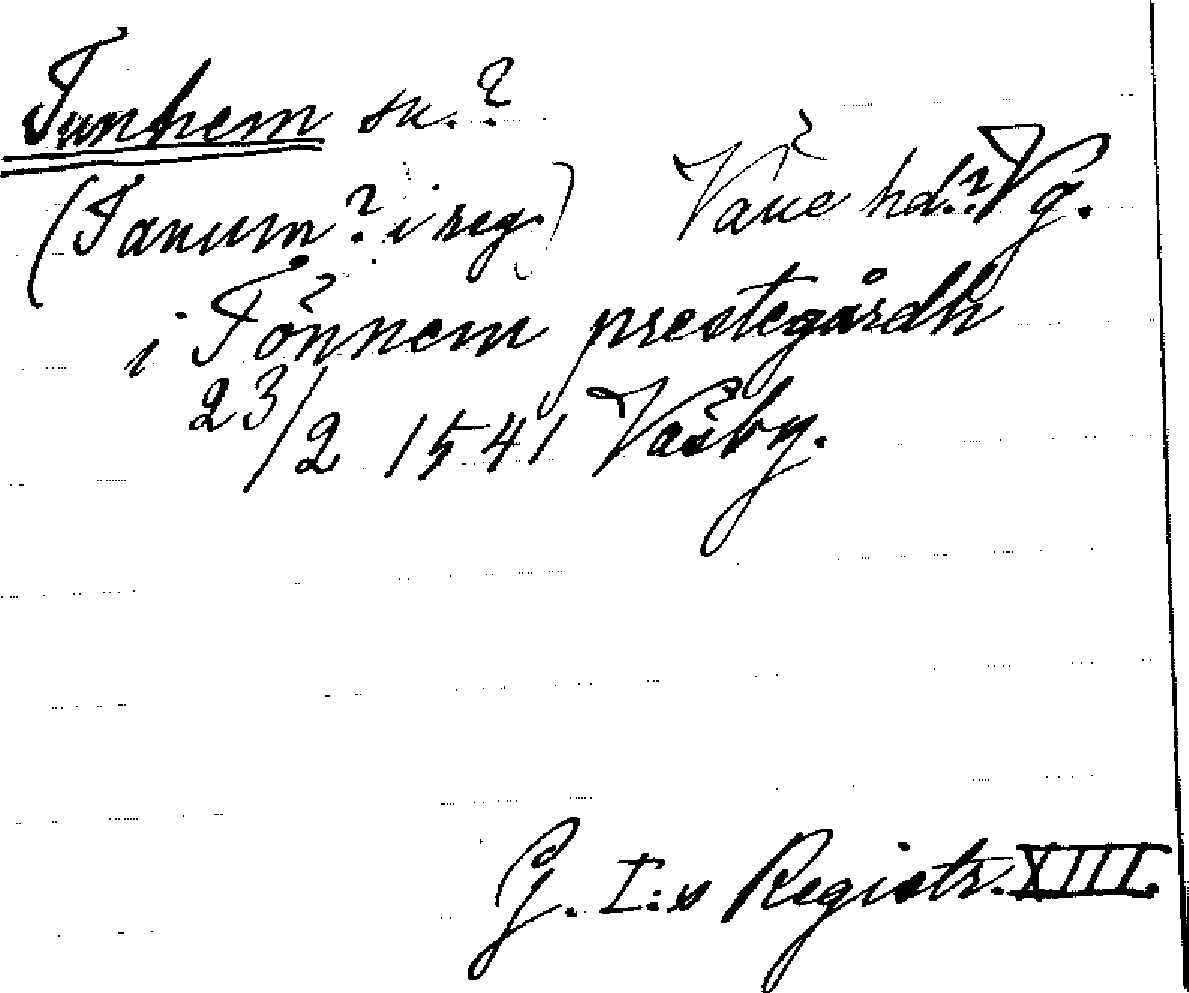 Tunhem sn.?
(Tanum? i reg.) Väne hd.? Vg.
i Tönnem prestegårdh
23/2 1541 Vaësby.
G. I:s Registr. XIII.